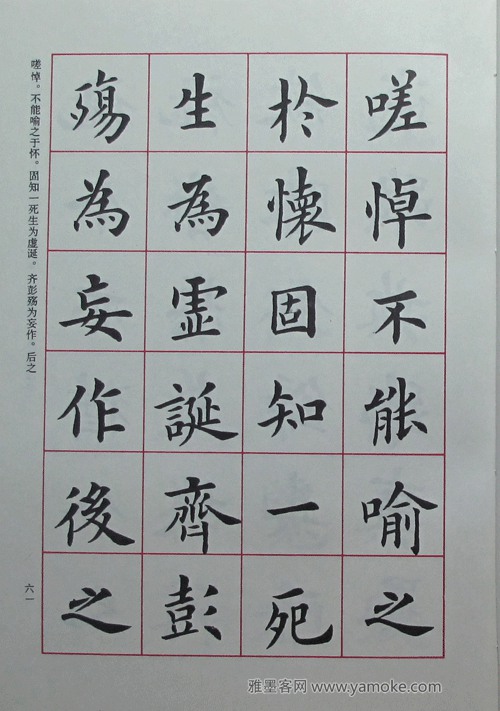 嗟悼不能喻之
於懷固知一死
生為虛誕齊彭
殤為妄作後之
嗟悼。不能喻之于怀。固知一死生为虚诞。齐彭殇为妄作。后之
六一
雅墨客网 www.yamoke.com